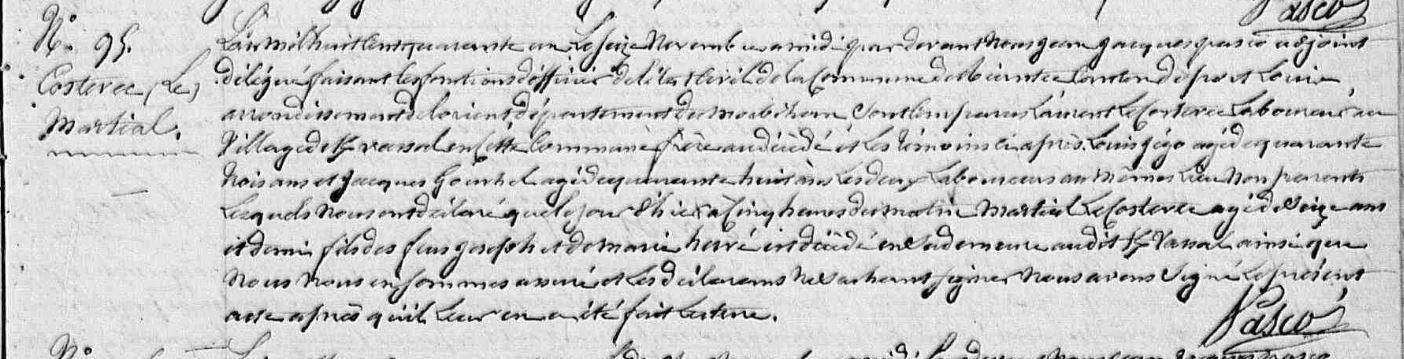 Pasco
N.o 95.
Costevec (Le)
Martial.
L'an mil huit cent quarante un le seize Novembre a midi par devant Nous jean jacques pasco adjoint
délégué faisant les fonctions d'officier de l'état Civil de la Commune de Canton de port Louis
arrondissement de lorient département du Morbihan Sont Comparus Laurent Le Costevec Laboureur au
Village de Kvassal en Cette Commune frère au décédé et les témoins Ci après, Louis gégo agé de quarante
trois ans et Jacques Gourhel agé de quarante huit ans Les deux Laboureurs au même Lieu Non parents
Lesquels Nous ont déclaré que le jour d'hier a Cinq heures du matin Martial Le Costevec agé de Seize ans
et demi fils des feus joseph et de marie hervé est décédé en Sa demeure au dit Kvassal ainsi que
Nous Nous en Sommes assuré et Les déclarans Ne Sachant signer Nous avons Signé Le présent
acte après qu'il Leur en a été fait Lecture.
Pasco